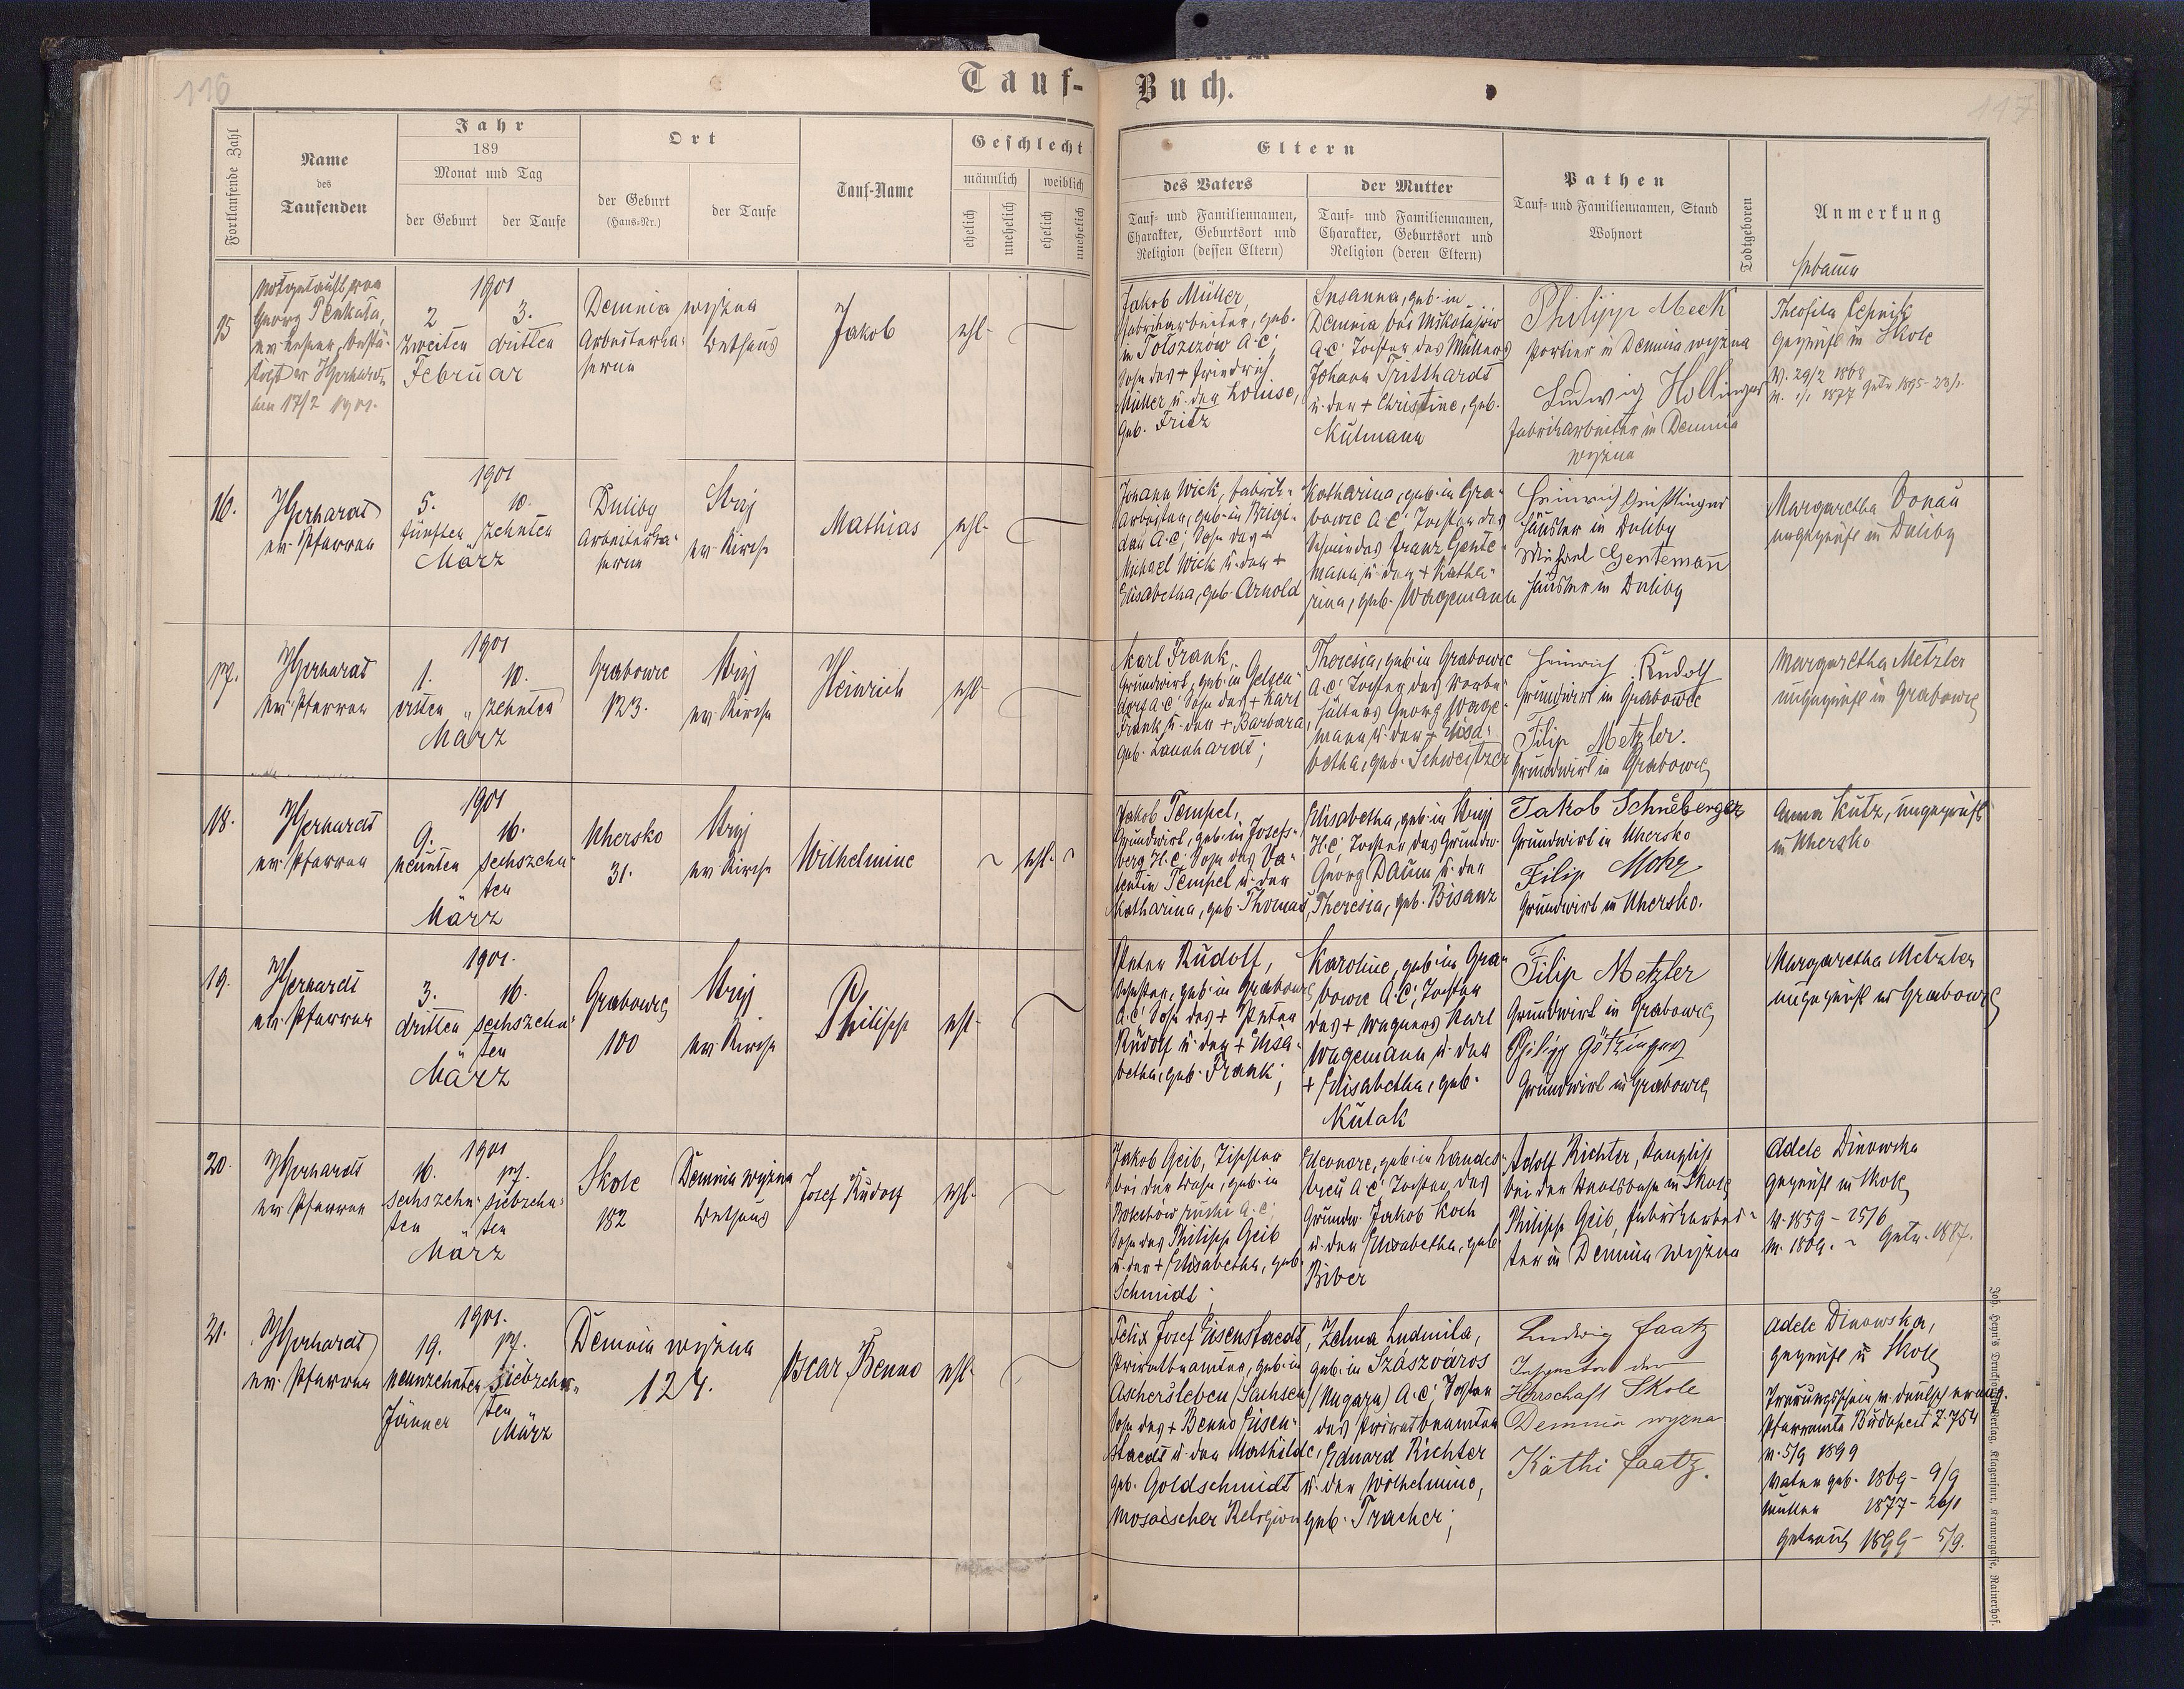 116
117
Tauf-Buch.
Fortlaufende Zahl
Name
des
Taufenden
Jahr
189
Monat und Tag
der Geburt
der Taufe
Ort
der Geburt
(Haus-Nr.)
der Taufe
Tauf-Name
Geschlecht
männlich
weiblich
ehelich
unehelich
ehelich
unehelich
Eltern
des Vaters
Tauf- und Familiennamen,
Charakter, Geburtsort und
Religion (dessen Eltern)
der Mutter
Tauf- und Familiennamen,
Charakter, Geburtsort und
Religion (deren Eltern)
Pathen
Tauf- und Familiennamen, Stand
Wohnort
Todtgeboren
Anmerkung
Hebamme
15
Notgetauft von
Georg Penkala,
ev. Lehrer, bestä-
tigt Gerhardt
am 17/2 1901.
1901
2
zweiten
3.
dritten
Februar
Demnia wyżna
Arbeiterka-
serne
Bethaus
Jakob
ehl.
Jakob Müller,
Fabriksarbeiter, geb.
in Tolszczow A.C.
Sohn des + Friedrich
Müller u. der Louise,
geb. Fritz
Susanna, geb. in
Demnia bei Mikołajów
A.C. Tochter des Müllers
Johann Tritthardt
u. der + Christine, geb.
Kulmann
Philipp Meck
Portier in Demnia wyżna
Ludwig Hollinger
Fabriksarbeiter in Demnia
wyżna
Theofila
geprüft in Skole
V. 29/2 1868
M. 1/1 1877 getr 1895 - 28/1.
16.
Gerhardt
ev. Pfarrer
1901
5.
fünften
10.
zehnten
März
Duliby
Arbeiterka-
serne
Stryj
ev. Kirche
Mathias
ehl.
Johann Wick, Fabriks-
arbeiter, geb. in Brigi-
dau A.C. Sohn des +
Michael Wick u. der +
Elisabetha, geb. Arnold
Katharina, geb. in Gra-
bowce A.C. Tochter des
Schmiedes Franz Gente-
mann u. der + Katha-
rina, geb. Wagemann
Heinrich
Häusler in Duliby
Michael Gentemann
Häusler in Duliby
Margaretha Donau
ungeprüft in Duliby
17.
Gerhardt
ev. Pfarrer
1901
1.
ersten
10.
zehnten
März
Grabowce
123.
Stryj
ev. Kirche
Heinrich
ehl.
Karl Frank,
Grundwirt, geb. in Gelsen-
dorf A.C. Sohn des + Karl
Frank u. der + Barbara,
geb. Launhardt;
Theresia, geb. in Grabowce
A.C. Tochter des Vorbe-
hälters Georg Wage-
mann u. der + Elisa-
betha, geb. Schweitzer
Heinrich Rudolf
Grundwirt in Grabowce
Filip Metzler.
Grundwirt in Grabowce
Margaretha Metzler
ungeprüft in Grabowce
18.
Gerhardt
ev. Pfarrer
1901
9.
neunten
16.
sechszehn-
ten
März
Uhersko
31.
Stryj
ev. Kirche
Wilhelmine
ehl.
Jakob Tempel,
Grundwirt, geb. in Josefs-
berg H.C. Sohn des Va-
lentin Tempel u. der
Katharina, geb. Thomas,
Elisabetha, geb. in Stryj
H.C. Tochter des Grundw.
Georg Daum u. der
Theresia, geb. Bisanz
Jakob Schneberger
Grundwirt in Uhersko
Filip Mohr
Grundwirt in Uhersko.
Anna Kutz, ungeprüft
in Uhersko
19.
Gerhardt
ev. Pfarrer
1901.
3.
dritten
16.
sechszehn-
ten
März
Grabowce
100
Stryj
ev. Kirche
Philipp
ehl.
Peter Rudolf,
Schuster, geb. in Grabowce
A.C. Sohn des + Peter
Rudolf u. der + Elisa-
betha, geb. Frank;
Karoline, geb. in Gra-
bowce A.C. Tochter
des + Wagners Karl
Wagemann u. der
+ Elisabetha, geb.
Kulak
Filip Metzler
Grundwirt in Grabowce
Philipp Götzinger
Grundwirt in Grabowce
Margaretha Metzler
ungeprüft in Grabowce
20.
Gerhardt
ev. Pfarrer
1901
16.
sechszehn-
ten
17.
siebzehn-
ten
März
Skole
182
Demnia wyżna
Bethaus
Josef Rudolf
ehl.
Jakob Geib, Tischler
bei der Bahn, geb. in
Bolechow ruski A.C.
Sohn des Philipp Geib
u. der + Elisabetha, geb.
Schmidt
Eleonore, geb. in Landes-
treu A.C. Tochter des
Grundw. Jakob Koch
u. der Elisabetha, geb.
Biber
Adolf Richter, Kanzlist
bei der Staatsbahn in Skole
Philipp Geib, Fabriksarbei-
ter in Demnia wyżna
Adele Dinowska
geprüft in Skole
V. 1859 - 25/6
M. 1869. - Getr. 1887.
21.
Gerhardt
ev. Pfarrer
1901.
19.
neunzehnten
Jänner
17.
siebzehn-
ten
März
Demnia wyżna
124.
Oscar Benno
ehl.
Felix Josef Eisenstaedt,
Privatbeamter, geb. in
Aschersleben (Sachsen)
Sohn des + Benno Eisen-
staedt u. der Mathilde,
geb. Goldschmidt
mosaischer Religion
Zelma Ludmila,
geb. in Szászváros
(Ungarn) A.C. Tochter
des Privatbeamten
Eduard Richter
u. der Wilhelmine,
geb. Tracher;
Ludwig Faatz
Inspector der
Herrschaft Skole
Demnia wyzna
Käthi Faatz.
Adele Dinowska,
geprüft in Skole
Trauungsschein v. deutsch evang.
Pfarramte Budapest Z. 754
v. 5/9 1899
Vater geb. 1869 - 9/9
Mutter 1877 - 26/1
getraut 1899 - 5/9.
Joh. Heyn's Druck und Verlag, Klagenfurt, Kramergasse, Rainerhof.